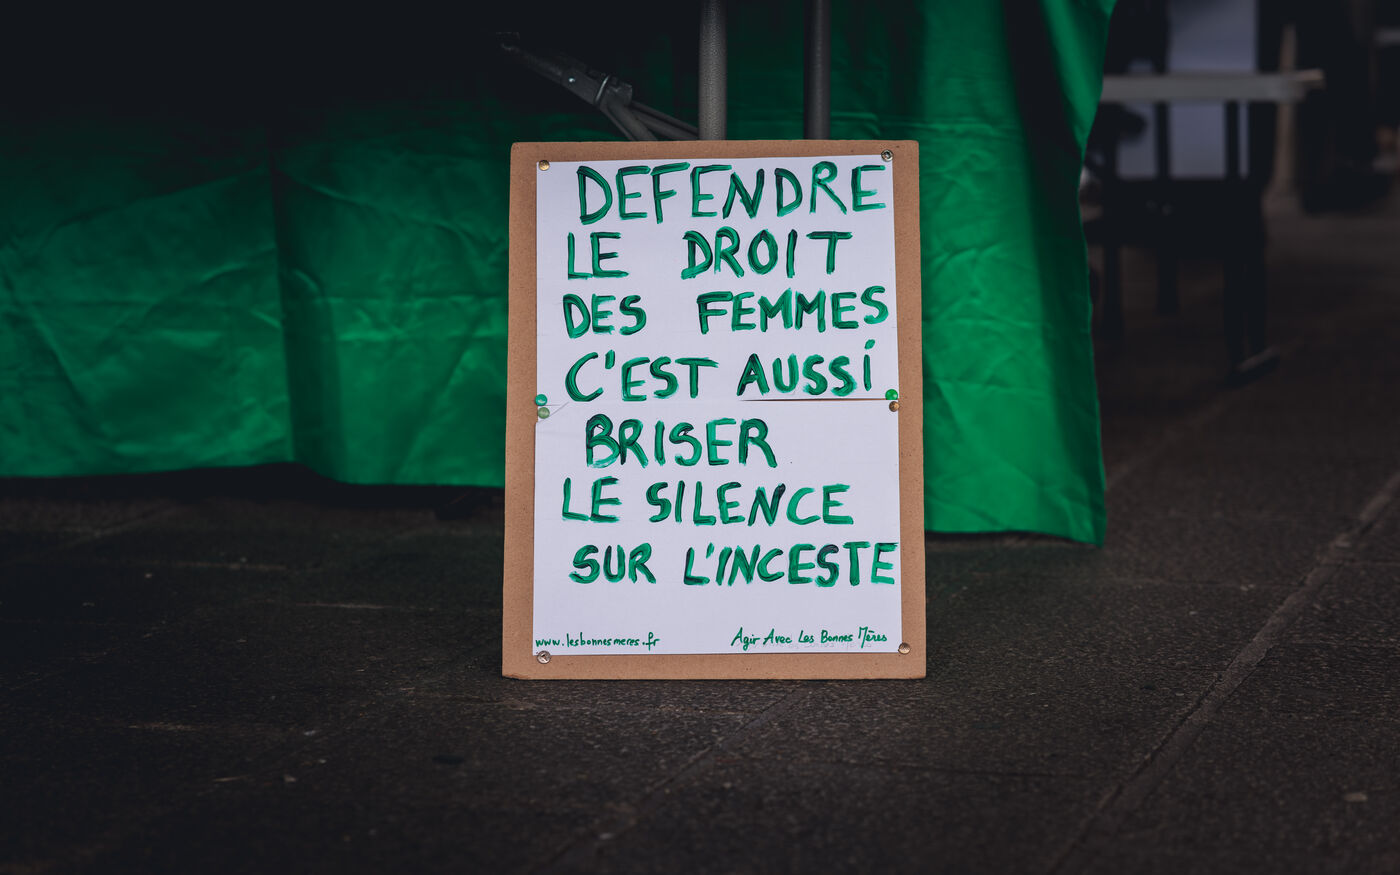 DEFENDRE
LE DROIT
DES FEMMES
C'EST AUSSi
BRISER
LE SILENCE
SUR L'INCESTE
www.lesbonnesmeres.fr Agir Avec Les Bonnes Mères